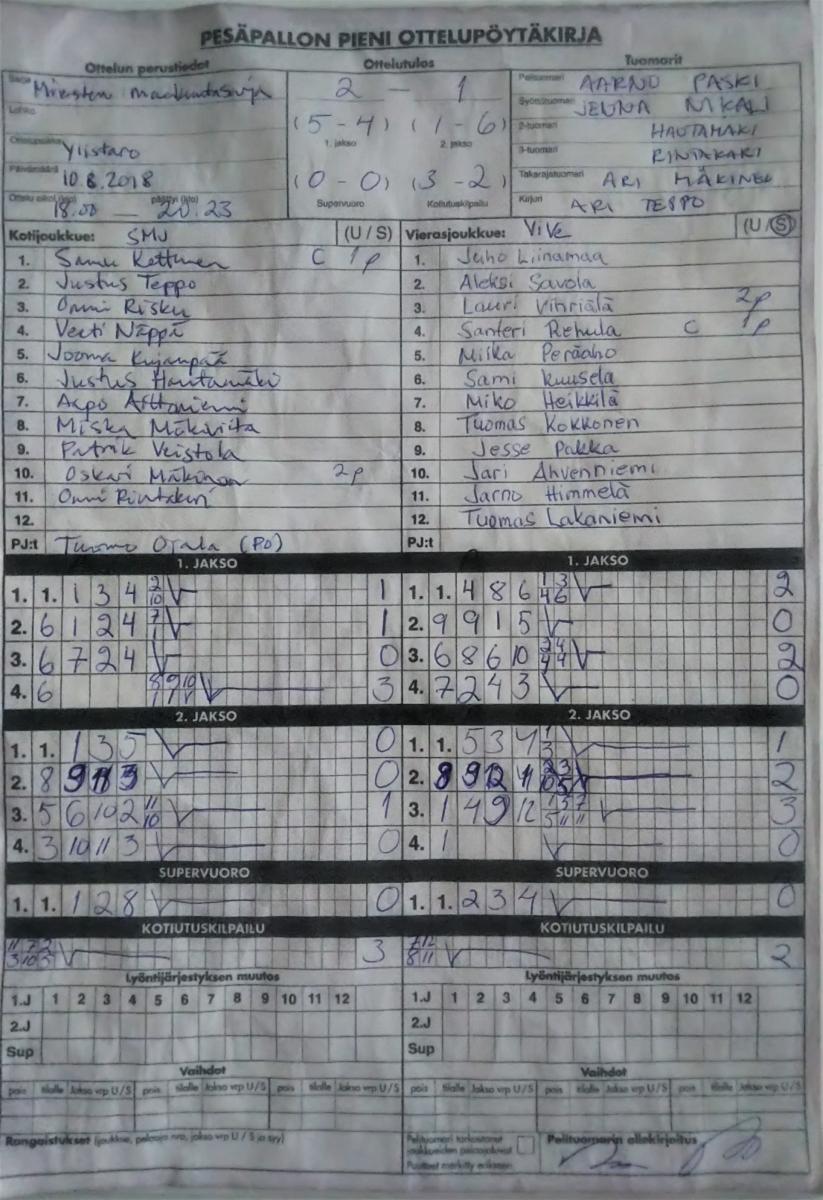 PESÄPALLON PIENI OTTELUPÖYTÄKIRJA
Ottelun perustiedot
Ottelutulos
Tuomarit
Sarja Miesten maakuntasarja
Lohko
Ottelupaikka Ylistaro
Päivämäärä 10.8.2018
Ottelu alkoi (klo) 18.00 — päättyi (klo) 20.23
2 — 1
(5 - 4) (1 - 6)
1. jakso 2. jakso
(0 - 0) (3 - 2)
Supervuoro Kotiutuskilpailu
Pelituomari AARNO PASKI
Syöttötuomari JENNA NIKALI
2-tuomari HAUTAMÄKI
3-tuomari RINTAKARI
Takarajatuomari ARI MÄKINEN
Kirjuri ARI TEPPO
Kotijoukkue: SMJ (U / S)
1. Samu Kettunen C 1p
2. Justus Teppo
3. Onni Risku
4. Veeti Näppä
5. Joona Kujanpää
6. Justus Hautamäki
7. Aapo
8. Miska Mäkiviita
9. Patrik Veistola
10. Oskari Mäkinen 2p
11. Onni Rintakari
12.
PJ:t Tuomo Ojala (PJ)
Vierasjoukkue: ViVe (U / S)
1. Juho Liinamaa
2. Aleksi Savola
3. Lauri Vihriälä 2p
4. Santeri Rehula C 1p
5. Miika Peräaho
6. Sami Kuusela
7. Miko Heikkilä
8. Tuomas Kokkonen
9. Jesse Pakka
10. Jari Ahvenniemi
11. Jarno Himmelä
12. Tuomas Lakaniemi
PJ:t
1. JAKSO
1. 1. 1 3 4 2/10 1
2. 6 1 2 4 7/1 1
3. 6 7 2 4 0
4. 6 3
1. JAKSO
1. 1. 4 8 6 1/4 3/6 2
2. 9 9 1 5 0
3. 6 8 6 10 2/4 4/4 2
4. 7 2 4 3 0
2. JAKSO
1. 1. 1 3 5 0
2. 8 9 11 3 0
3. 5 6 10 2 11/10 1
4. 3 10 11 3 0
2. JAKSO
1. 1. 5 3 4 1/3 1
2. 8 9 12 11 2
3. 1 4 9 12 1/5 5/11 7/11 3
4. 1 0
SUPERVUORO
1. 1. 1 2 8 0
SUPERVUORO
1. 1. 2 3 4 0
KOTIUTUSKILPAILU
11/3 7/10 2/5 3
KOTIUTUSKILPAILU
7/8 12/11 2
Lyöntijärjestyksen muutos
1.J 1 2 3 4 5 6 7 8 9 10 11 12
2.J
Sup
Lyöntijärjestyksen muutos
1.J 1 2 3 4 5 6 7 8 9 10 11 12
2.J
Sup
Vaihdot
pois tilalle Jakso vrp U/S pois tilalle Jakso vrp U/S pois tilalle Jakso vrp U/S
Vaihdot
pois tilalle Jakso vrp U/S pois tilalle Jakso vrp U/S pois tilalle Jakso vrp U/S
Rangaistukset (joukkue, pelaaja nro, jakso vrp U / S ja syy)
Pelituomari tarkastanut
joukkueiden pelaajaluvat
Puutteet merkitty erikseen
Pelituomarin allekirjoitus